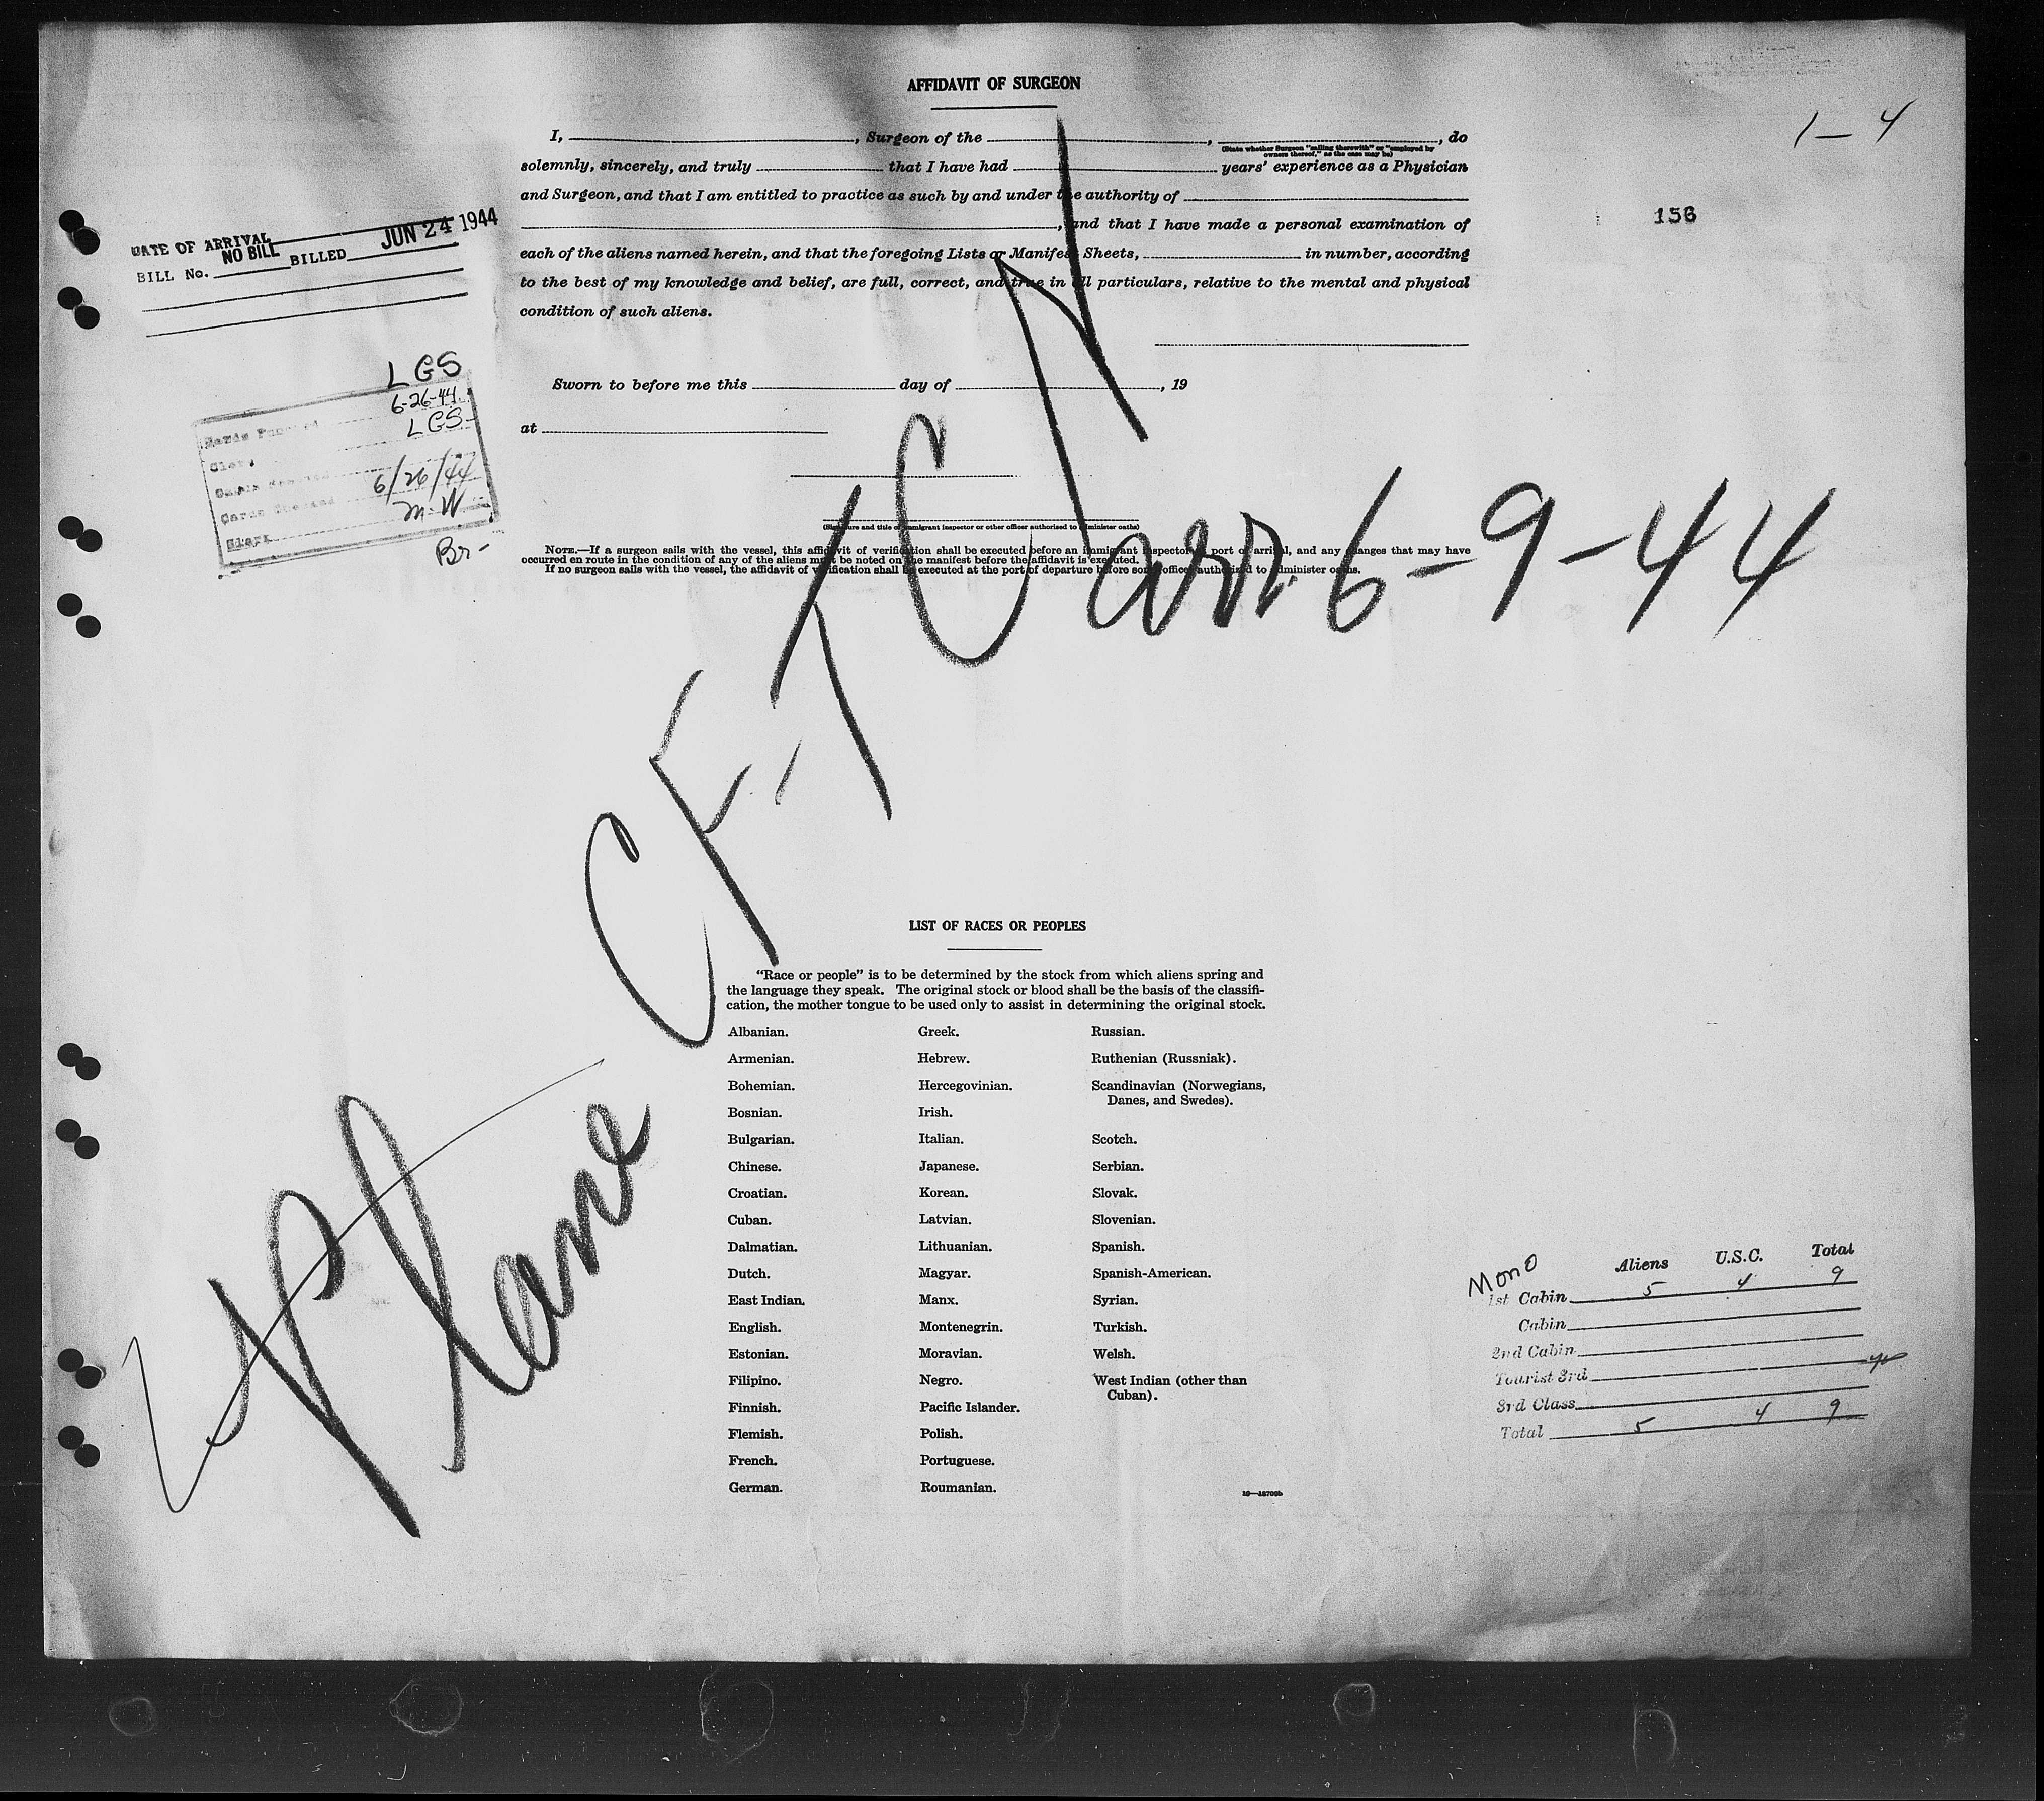 AFFIDAVIT OF SURGEON
1-4
I, , Surgeon of the , , do
(State whether Surgeon "sailing therewith" or "employed by
owners thereof," as the case may be)
solemnly, sincerely, and truly that I have had years' experience as a Physician
and Surgeon, and that I am entitled to practice as such by and under the authority of
, and that I have made a personal examination of
156
each of the aliens named herein, and that the foregoing Lists or Manifest Sheets, in number, according
to the best of my knowledge and belief, are full, correct, and true in all particulars, relative to the mental and physical
condition of such aliens.
Sworn to before me this day of , 19
at
(Signature and title of immigrant inspector or other officer authorized to administer oaths)
NOTE.—If a surgeon sails with the vessel, this affidavit of verification shall be executed before an immigrant inspector at port of arrival, and any changes that may have
occurred en route in the condition of any of the aliens must be noted on the manifest before the affidavit is executed.
If no surgeon sails with the vessel, the affidavit of verification shall be executed at the port of departure before some officer authorized to administer oaths.
DATE OF ARRIVAL
BILL No. NO BILL BILLED JUN 24 1944
LGS
6-26-44
LGS
Clerk
6/26/44
Cards Checked
M.W
Clerk
Br-
Plane CF-TCN arr. 6-9-44
LIST OF RACES OR PEOPLES
"Race or people" is to be determined by the stock from which aliens spring and
the language they speak. The original stock or blood shall be the basis of the classifi-
cation, the mother tongue to be used only to assist in determining the original stock.
Albanian.
Armenian.
Bohemian.
Bosnian.
Bulgarian.
Chinese.
Croatian.
Cuban.
Dalmatian.
Dutch.
East Indian.
English.
Estonian.
Filipino.
Finnish.
Flemish.
French.
German.
Greek.
Hebrew.
Hercegovinian.
Irish.
Italian.
Japanese.
Korean.
Latvian.
Lithuanian.
Magyar.
Manx.
Montenegrin.
Moravian.
Negro.
Pacific Islander.
Polish.
Portuguese.
Roumanian.
Russian.
Ruthenian (Russniak).
Scandinavian (Norwegians,
Danes, and Swedes).
Scotch.
Serbian.
Slovak.
Slovenian.
Spanish.
Spanish-American.
Syrian.
Turkish.
Welsh.
West Indian (other than
Cuban).
Mono
Aliens U.S.C. Total
1st Cabin 5 4 9
Cabin
2nd Cabin
Tourist 3rd
3rd Class
Total 5 4 9